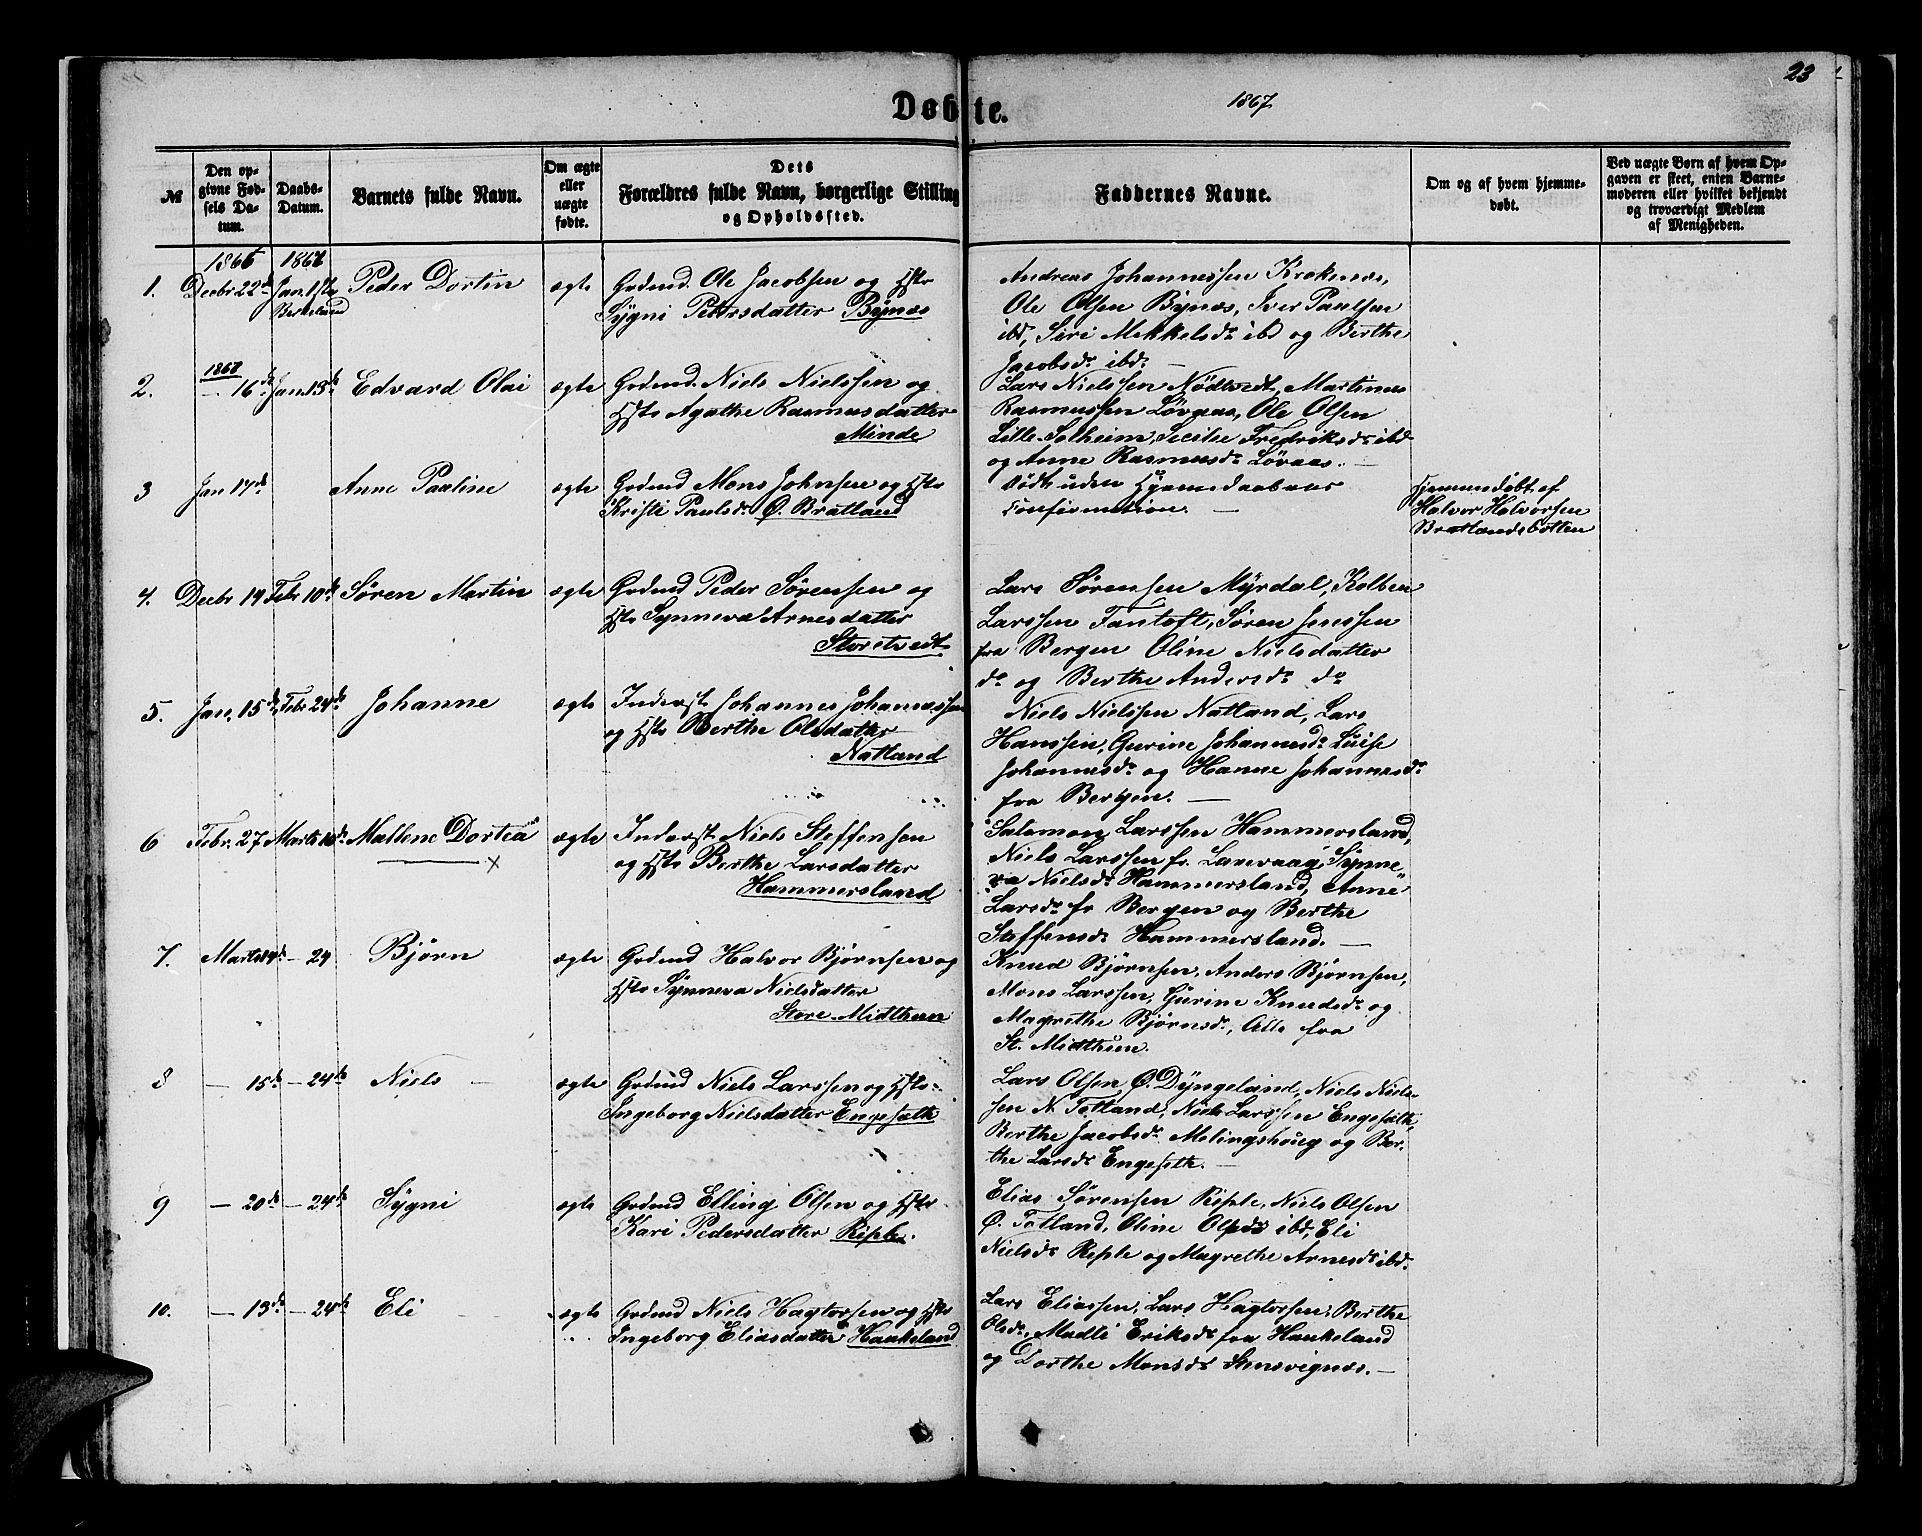 23
Døbte.
1867
№
Den op-
givne Fød-
sels Da-
tum.
Daabs-
Datum.
Barnets fulde Navn.
Om ægte
eller
uægte
fødte.
Dets
Forældres fulde Navn, borgerlige Stilling
og Opholdssted.
Faddernes Navne.
Om og af hvem hjemme-
døbt.
Ved uægte Børn af hvem Op-
gaven er skeet, enten Barne-
moderen eller hvilket bekjendt
og troværdigt Medlem
af Menigheden.
1866 1867
1. Decbr 22de Jan. 1ste Peder Dortin ægte Grdmd. Ole Jacobsen og Hstr
Berkeland
Sygni Petersdatter Bynæs
Andreas Johannessen Kroknæs,
Ole Olsen Bynæs, Iver Paulsen
ibd, Siri Mekkelsdr ibd og Berthe
Jacobsdr ibd. —
1867
2. — 16de Jan. 13de Edvard Olai ægte Grdmd. Niels Nielssen og
Hstr Agathe Rasmusdatter
Minde
Lars Nielssen Nödtvedt, Martinus
Rasmussen Løvaas, Ole Olsen
Lille-Solheim, Secilie Fredriksdr ibd
og Anne Rasmusdr Løvaas. —
3 Jan 17de Anne Pauline ægte Grdmd Mons Johnsen og Hstr
Kristi Paulsdr Ø. Bratland
død uden Hjemmedaabens
Confirmation. —
Hjemmedøbt af
Halvor Halvorsen
Bratlandsbotten
4. Decbr 19 Febr 10de Søren Martin ægte Grdmd Peder Sørensen og
Hstr Synneva Arnesdatter
Storetvedt
Lars Sørenssen Myrdal, Kolben
Larssen Fantoft, Søren Jenssen
fra Bergen Oline Nielsdatter
do og Berthe Andersdr do
5. Jan. 15de Febr 24de Johanne ægte Inderst Johannes Johannessen
og Hstr Berthe Olsdatter
Natland
Niels Nielssen Natland, Lars
Hanssen, Gurine Johannesdr Luise
Johannesdr og Hanne Johannesdr
fra Bergen. —
6 Febr. 27 Marts 10de Mallene Dortea ægte Inderst Niels Steffensen
og Hstr Berthe Larsdatter
Hammersland
Salamon Larssen Hammersland,
Niels Larssen fr. Laxevaag, Synne-
va Nielsdr Hammersland, Anne
Larsdr fr Bergen og Berthe
Steffensdr Hammersland. —
7. Marts 4de — 24 Bjørn ægte Grdmd Halvor Bjørnsen og
Hstr Synneva Nielsdatter
Store-Midthun
Knud Bjørnsen, Anders Bjørnsen,
Mons Larssen, Gurine Knudsdr og
Magrethe Bjørnsdr, Alle fra
St. Midthun.
8 — 15de — 24de Niels ægte Grdmd Niels Larssen og Hstr
Ingeborg Nielsdatter Engesæth
Lars Olsen Ø. Dyngeland, Niels Niels-
sen N. Totland, Niels Larssen Engesæth,
Berthe Jacobsdr Melingshoug og Ber-
the Larsdr Engesæth. —
9 — 20de — 24de Sygni ægte Grdmd Elling Olsen og Hstr
Kari Pedersdatter Riple.
Elias Sørensen Riple, Niels Olsen
Ø. Totland, Oline Olsdr ibd, Eli
Nielsdr Riple og Magrethe Arnesdr ibd.
10. — 13de — 24de Eli ægte Grdmd Niels Hagtorsen og Hstr
Ingeborg Eliasdatter Haukeland
Lars Eliassen, Lars Hagtorsen, Berthe
Olsdr, Madli Eriksdr fra Haukeland
og Dorthe Monsdr Stensvignæs. —